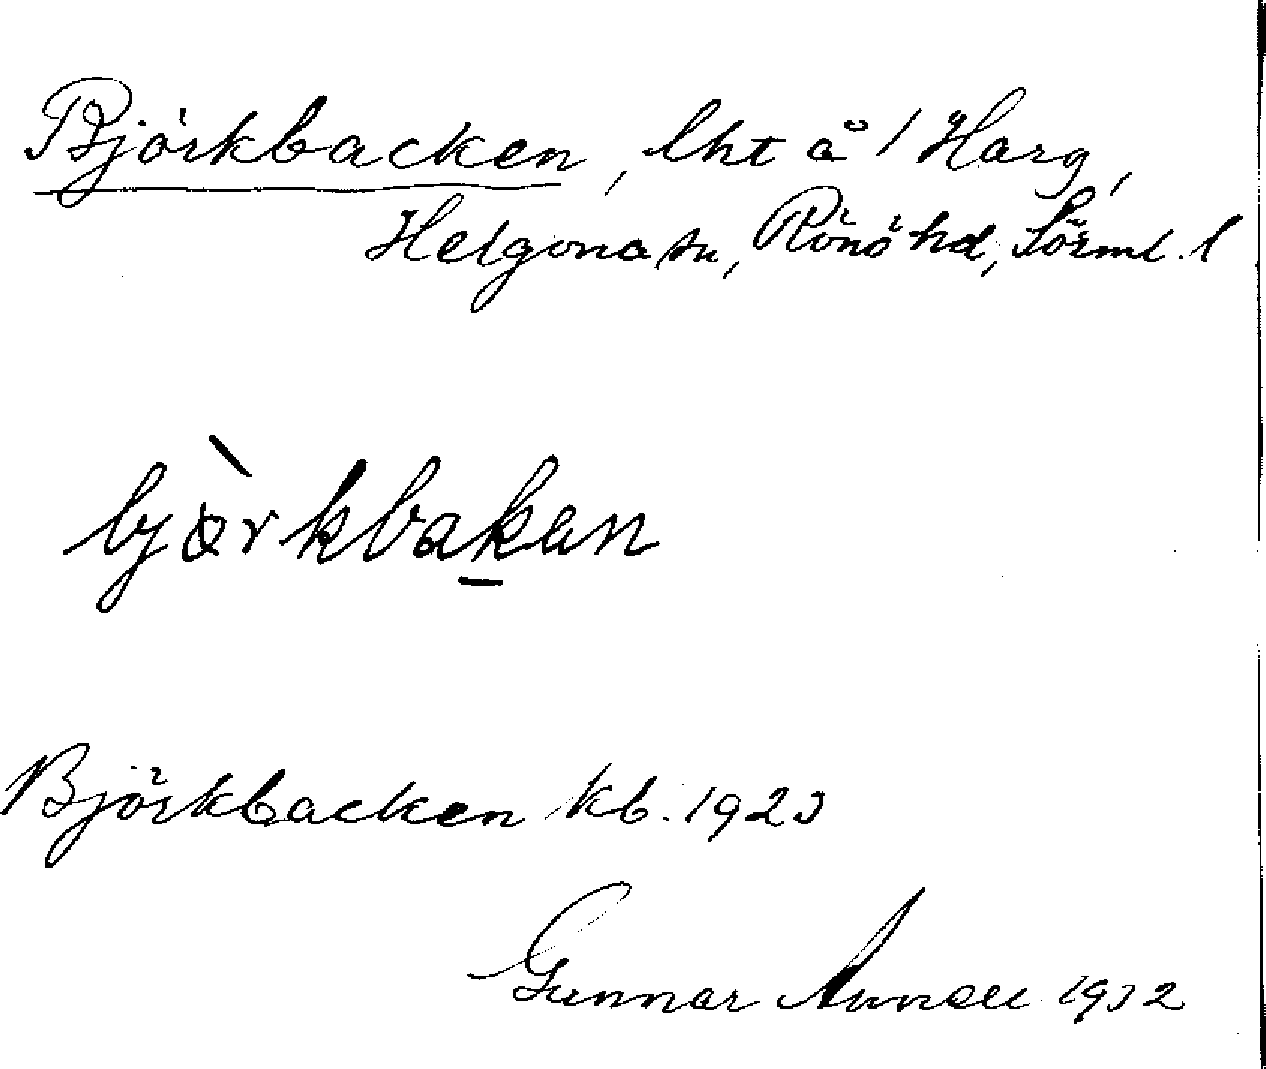 Björkbacken, lht å 1 Harg,
Helgona sn, Rönö hd, Sörml. l
bjørkbakan
Björkbacken kb. 1923
Gunnar 1932